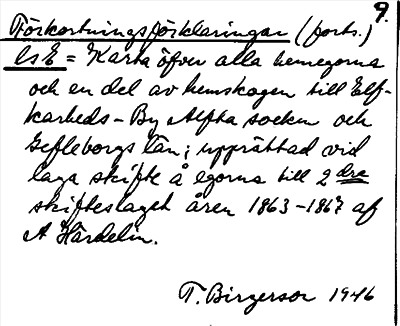 9.
Förkortningsförklaringar (forts.)
LsE = Karta öfver alla hemegorna
och en del av hemskogen till Elf-
karheds-By Alfta socken och
Gefleborgs län; upprättad vid
laga skifte å egorna till 2 dra
skifteslaget åren 1863-1867 af
A Hårdelin.
T. Birgerson 1946